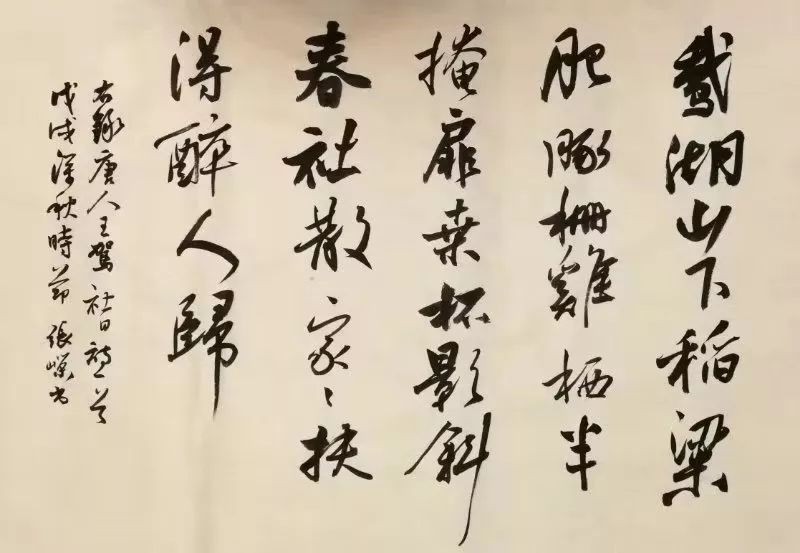 鵝湖山下稻粱
肥豚柵雞栖半
掩扉桒柘影斜
春社散家〻扶
得醉人歸
右錄唐人王駕社日詩一首
戊戌深秋時節 張嶸書